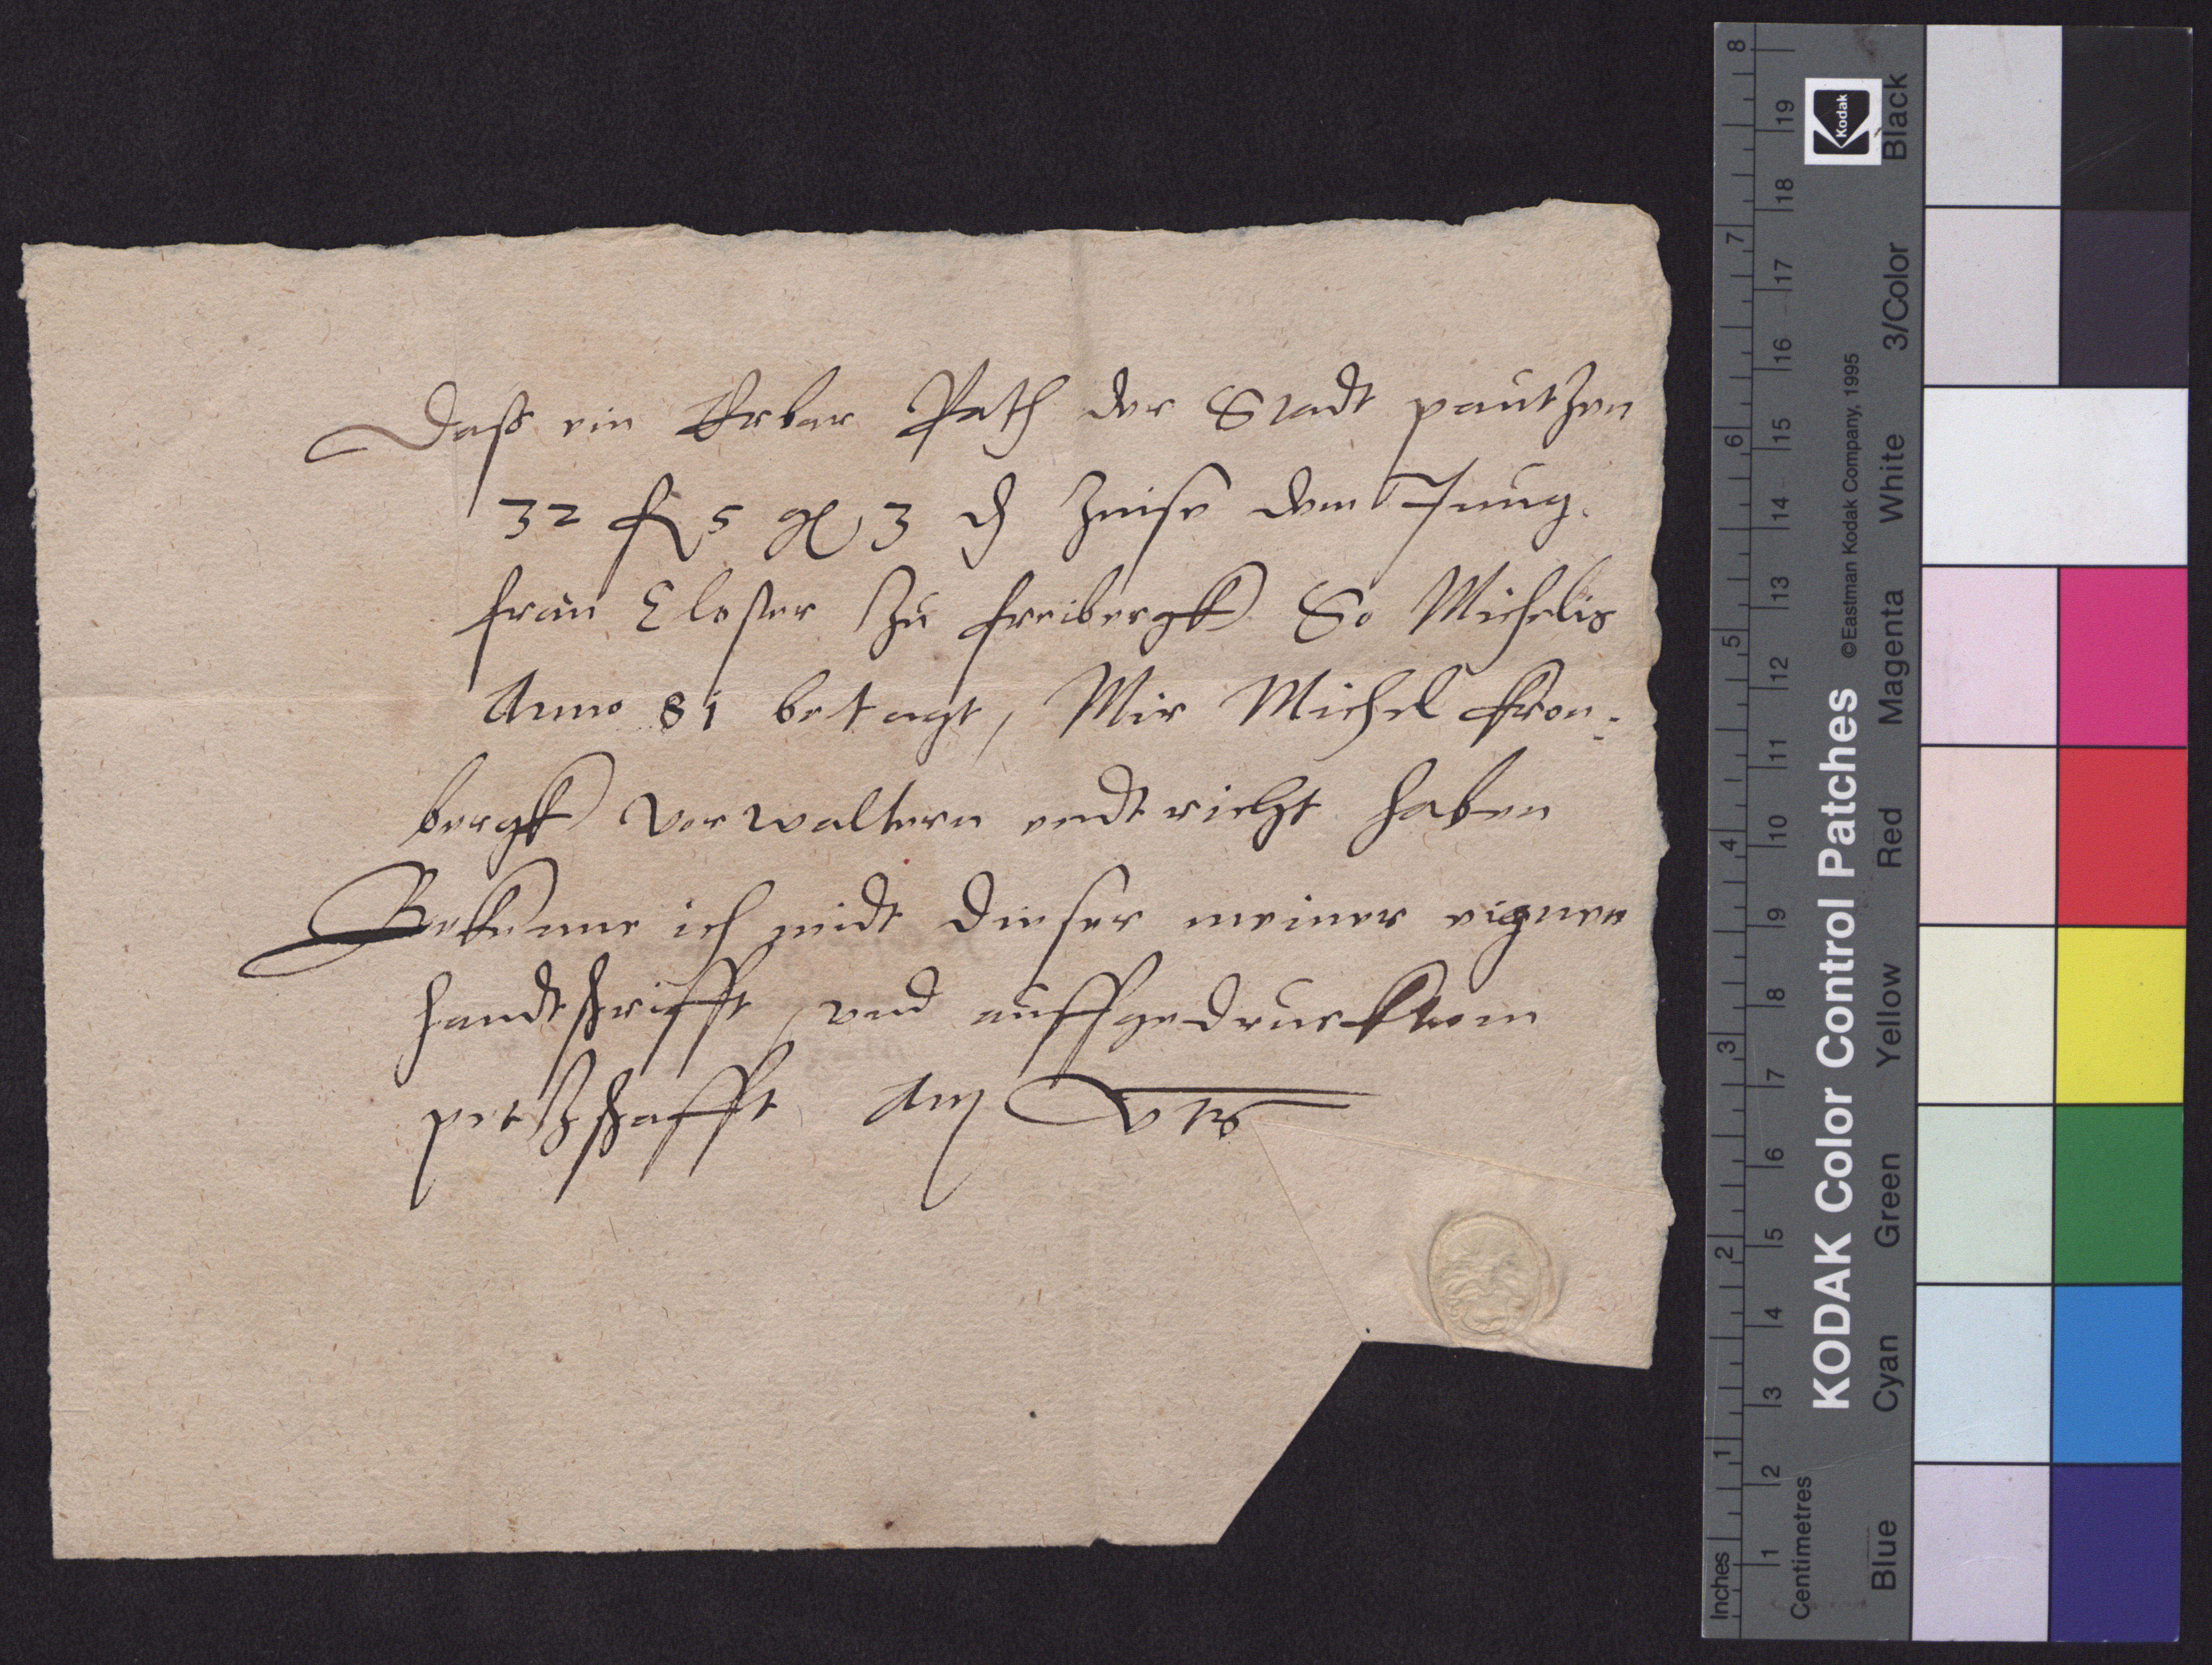 Dass ein Erbar Rath der Stadt pautzen
32 fl 5 gl 3 d Zinse dem Jung.
fraun Closter Zu freibergk So Michelis
Anno 81 betagt, Mir Michel Kron:
bergk Verwaltern endtricht haben
Bekenne ich midt dieser meiner eignen
handtschrifft, vnd auffgedrucktem
petzschafft Am Vts
KODAK Color Control Patches
©Eastman Kodak Company, 1995
Kodak
Blue Cyan Green Yellow Red Magenta White 3/Color Black
Inches 1 2 3 4 5 6 7 8
Centimetres 1 2 3 4 5 6 7 8 9 10 11 12 13 14 15 16 17 18 19